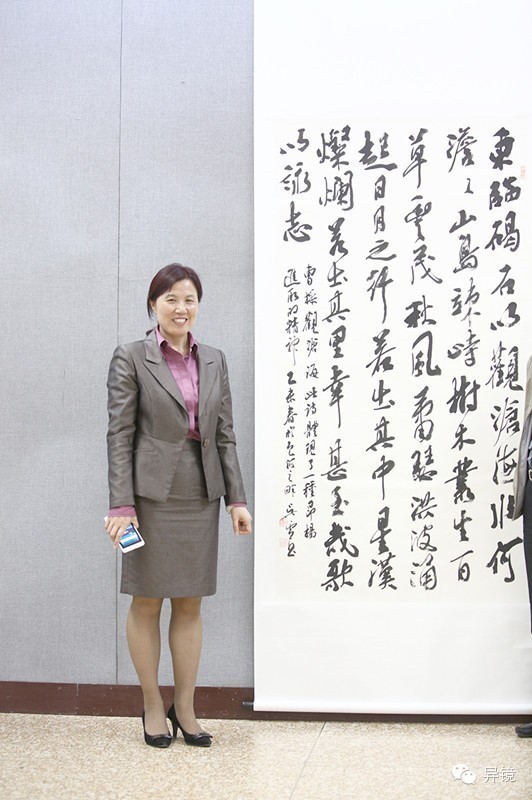 東臨碣石以觀滄海水何
澹々山島竦峙樹木叢生百
草豐茂秋風蕭瑟洪波涌
起日月之行若出其中星漢
燦爛若出其里幸甚至哉歌
以詠志
曹操觀滄海此詩體現了一種昂揚
進取的精神 乙未春於之畔
异镜